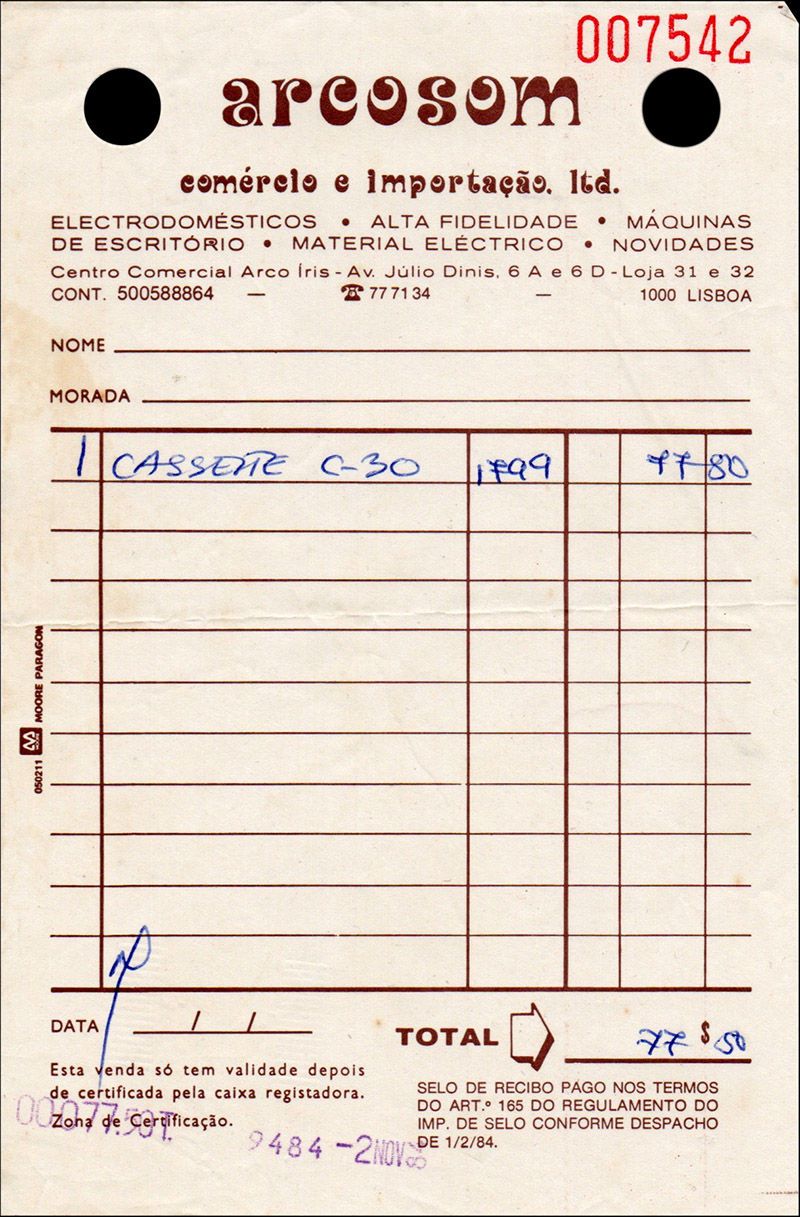 007542
arcosom
comércio e importação. ltd.
ELECTRODOMÉSTICOS • ALTA FIDELIDADE • MÁQUINAS
DE ESCRITÓRIO • MATERIAL ELÉCTRICO • NOVIDADES
Centro Comercial Arco Íris - Av. Júlio Dinis, 6 A e 6 D - Loja 31 e 32
CONT. 500588864 — ☎ 77 71 34 — 1000 LISBOA
NOME
MORADA
1 CASSETTE C-30 1799 77 80
050211 MOORE MOORE PARAGON
DATA / /
TOTAL 77 $ 50
Esta venda só tem validade depois
de certificada pela caixa registadora.
Zona de Certificação.
00077.50T.
9484 -2NOV
SELO DE RECIBO PAGO NOS TERMOS
DO ART.º 165 DO REGULAMENTO DO
IMP. DE SELO CONFORME DESPACHO
DE 1/2/84.